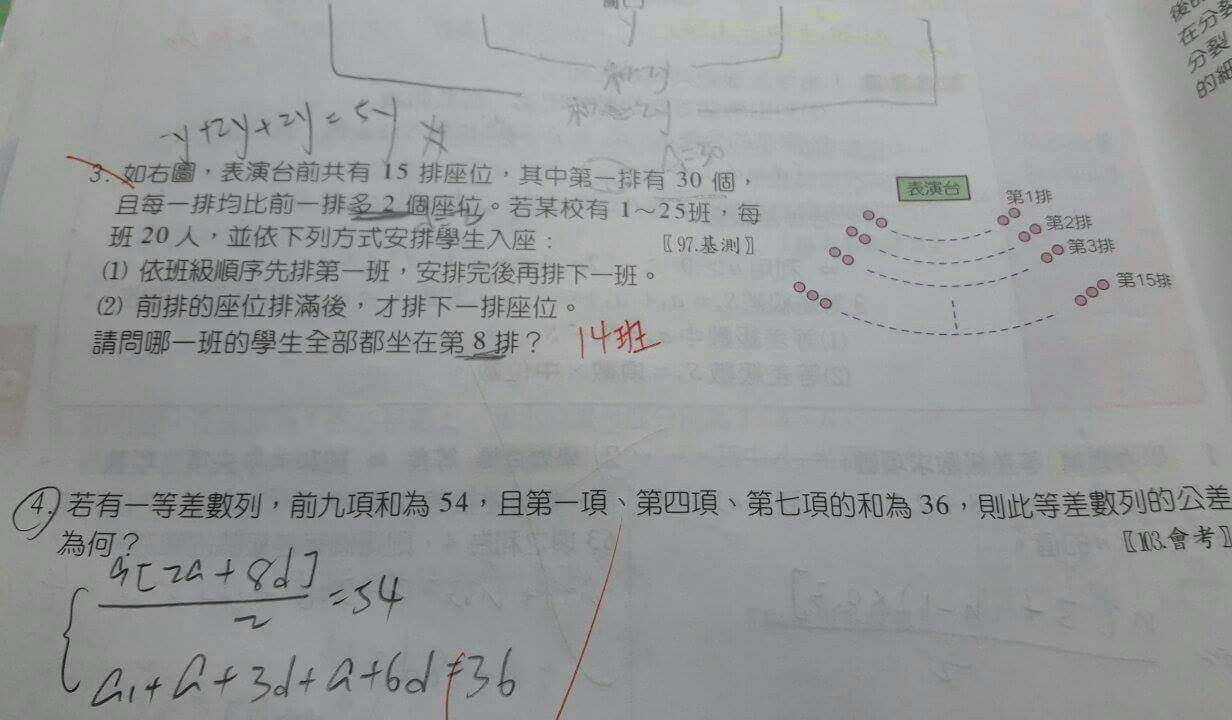 y
和=2y
-y+2y+2y=5y #
n=30
3. 如右圖，表演台前共有 15 排座位，其中第一排有 30 個，
且每一排均比前一排多 2 個座位。若某校有 1～25班，每
班 20 人，並依下列方式安排學生入座：〖97.基測〗
(1) 依班級順序先排第一班，安排完後再排下一班。
(2) 前排的座位排滿後，才排下一排座位。
請問哪一班的學生全部都坐在第 8 排？ 14班
表演台
第1排
第2排
第3排
第15排
4. 若有一等差數列，前九項和為 54，且第一項、第四項、第七項的和為 36，則此等差數列的公差
為何？〖103.會考〗
9[2a+8d]
2
=54
a1+a+3d+a+6d=36
後
在分裂
分裂
的細